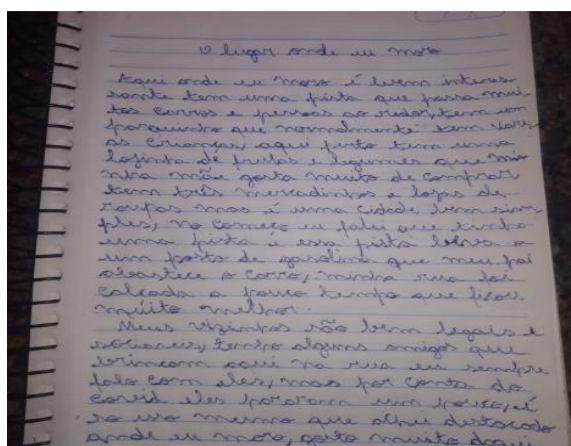 O lugar onde eu moro
Aqui onde eu moro é bem interes-
sante tem uma pista que passa mui-
tos carros e pessoas ao redor, tem um
parquinho que normalmente tem vari-
as crianças, aqui perto tem uma
lojinha de frutas e legumes que mi-
nha mãe gosta muito de comprar,
tem três mercadinhos e lojas de
roupas mas é uma cidade bem sim-
ples, no começo eu falei que tinha
uma pista e essa pista leva a
um posto de gasolina que meu pai
abastece o carro, minha rua foi
calçada a pouco tempo que ficou
muito melhor.
Meus vizinhos são bem legais e
sociaveis, tenho alguns amigos que
brincam aqui na rua eu sempre
falo com eles, mas por conta do
covid eles pararam um pouco, é
so isso mesmo que
onde eu moro, gosto muito daqui